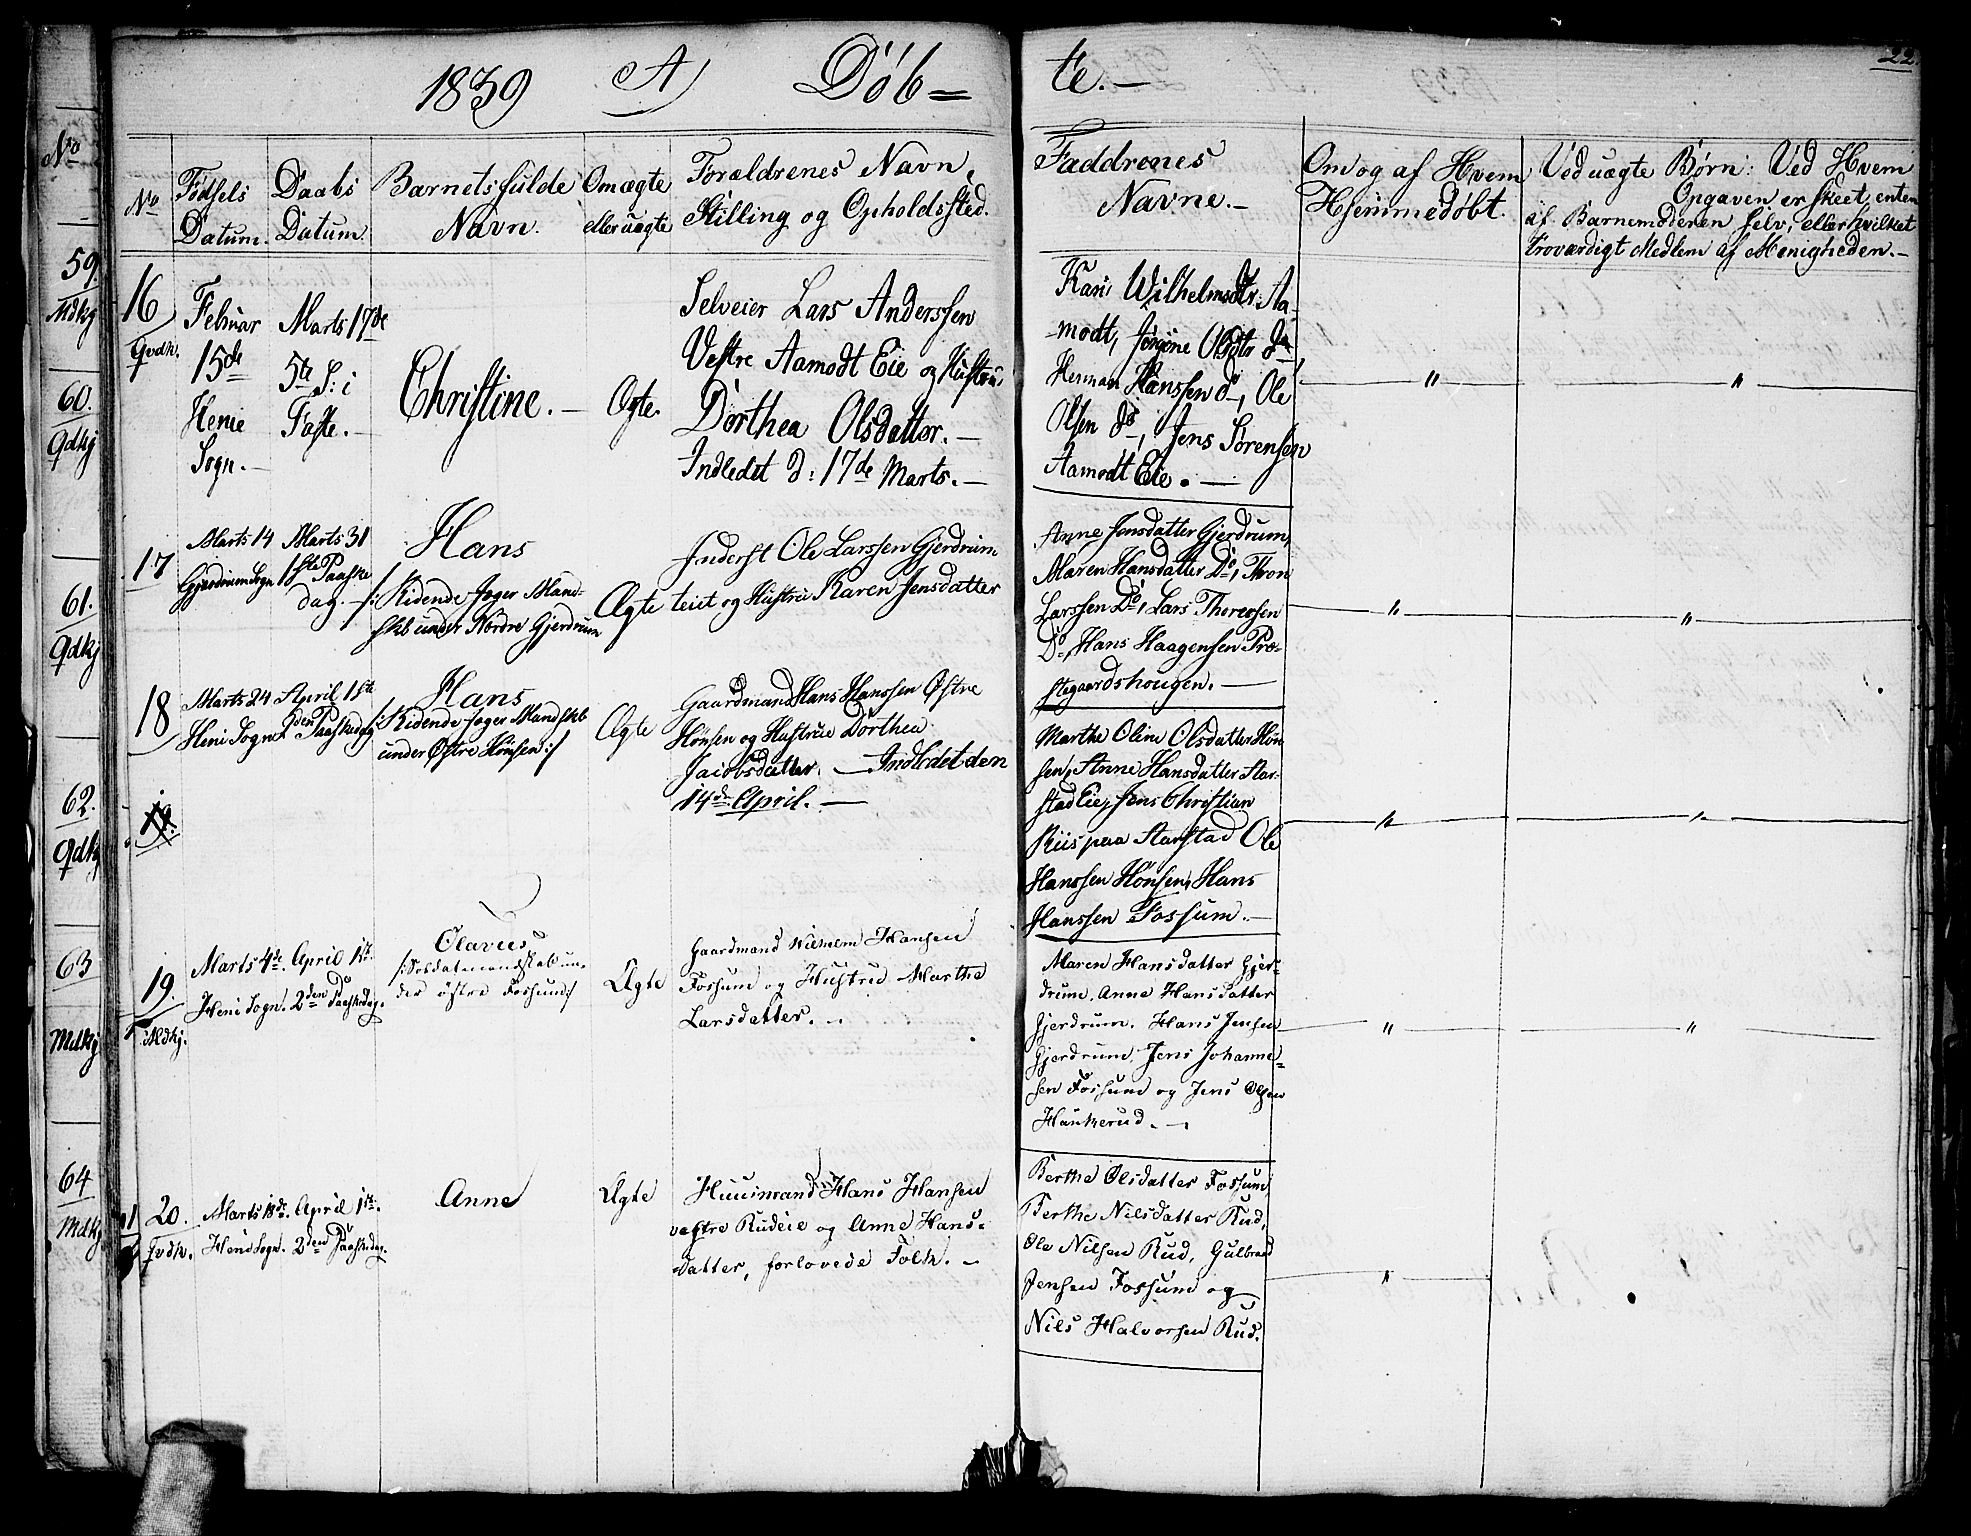 1839 A) Døb=
te.—
22.
No
Fødsels
Datum.
Daabs
Datum.
Barnets fulde
Navn.
Om ægte
eller uægte
Forældrenes Navn,
Stilling og Opholdssted.
Faddrenes
Navne.—
Om og af Hvem
Hjemmedøbt.
Ved uægte Børn: Ved Hvem
Opgaven er skeet, enten
af Barnemoderen selv, eller hvilket
troværdigt Medlem af Menigheden.—
No
59.
Mdkj
60.
Qdkj
61.
Qdkj
62.
Qdkj
63
Mdkj
64
Mdkj
16
Qvdk.
Februar
15de
Henie
Sogn.—
Marts 17de
5te S: i
Faste.—
Christine.—
Ægte.
Selveier Lars Anderssen
Vestre Aamodt Eie og Hustru
Dorthea Olsdatter.—
Indledet d: 17de Marts.—
Kari Wilhelmsdtr: Aa-
modt, Jørgine Olsdtr do
Herman Hanssen do, Ole
Olsen do, Jens Sørensen
Aamodt Eie.—
"
"
17
Marts 14
Gjerdrum Sogn
Marts 31
1ste Paaske
dag.—
Hans
/: Ridende Jæger Mand-
skb under Nordre Gjerdrum
Ægte
Inderst Ole Larssen Gjerdrum
teiet og Hustru Karen Jensdatter
Anne Jensdatter Gjerdrum,
Maren Hansdatter Do, Thron
Larssen Do, Lars Thoressen
Do, Hans Haagensen Præ-
stegaardshougen.—
"
"
18
Marts 24
Heni Sogn
April 1ste
2den Paaskedag
Hans
/: Ridende Jæger Mandskb
under Østre Hønsen :/
Ægte
Gaardmand Hans Hanssen Østre
Hønsen og Hustrue Dorthea
Jacobsdatter.— Indledet den
14de April.—
Marthe Oline Olsdatter Høn
sen, Anne Hansdatter Aar-
stad Eie, Jens Christian
Riis paa Aarstad Ole
Hanssen Hönsen, Hans
Hanssen Fossum.—
"
"
19.
19.
Mdkj.
Marts 4de.
Heni Sogn.
April 1ste.
2den Paaskedag.
Olavus
/: Soldatmandskab un-
der østre Fossum :/
Ægte
Gaardmand Wilhelm Hansen
Fossum og Hustrue Marthe
Larsdatter.—
Maren Hansdatter Gjer-
drum, Anne Hansdatter
Gjerdrum. Hans Jensen
Gjerdrum, Jens Johanne=
sen Fossum og Jens Olsen
Haukerud.—
"
"
20.
Qvdk.
Marts 18de.
Heni Sogn.
April 1ste.
2den Paaskedag.
Anne
Ægte
Huusmand Hans Hansen
vestre Rudeie og Anne Hans-
datter, forlovede Folk.—
Berthe Olsdatter Fossum
Berthe Nilsdatter Rud,
Ole Nilsen Rud, Gulbrand
Jensen Fossum og
Nils Halvorsen Rud.
"